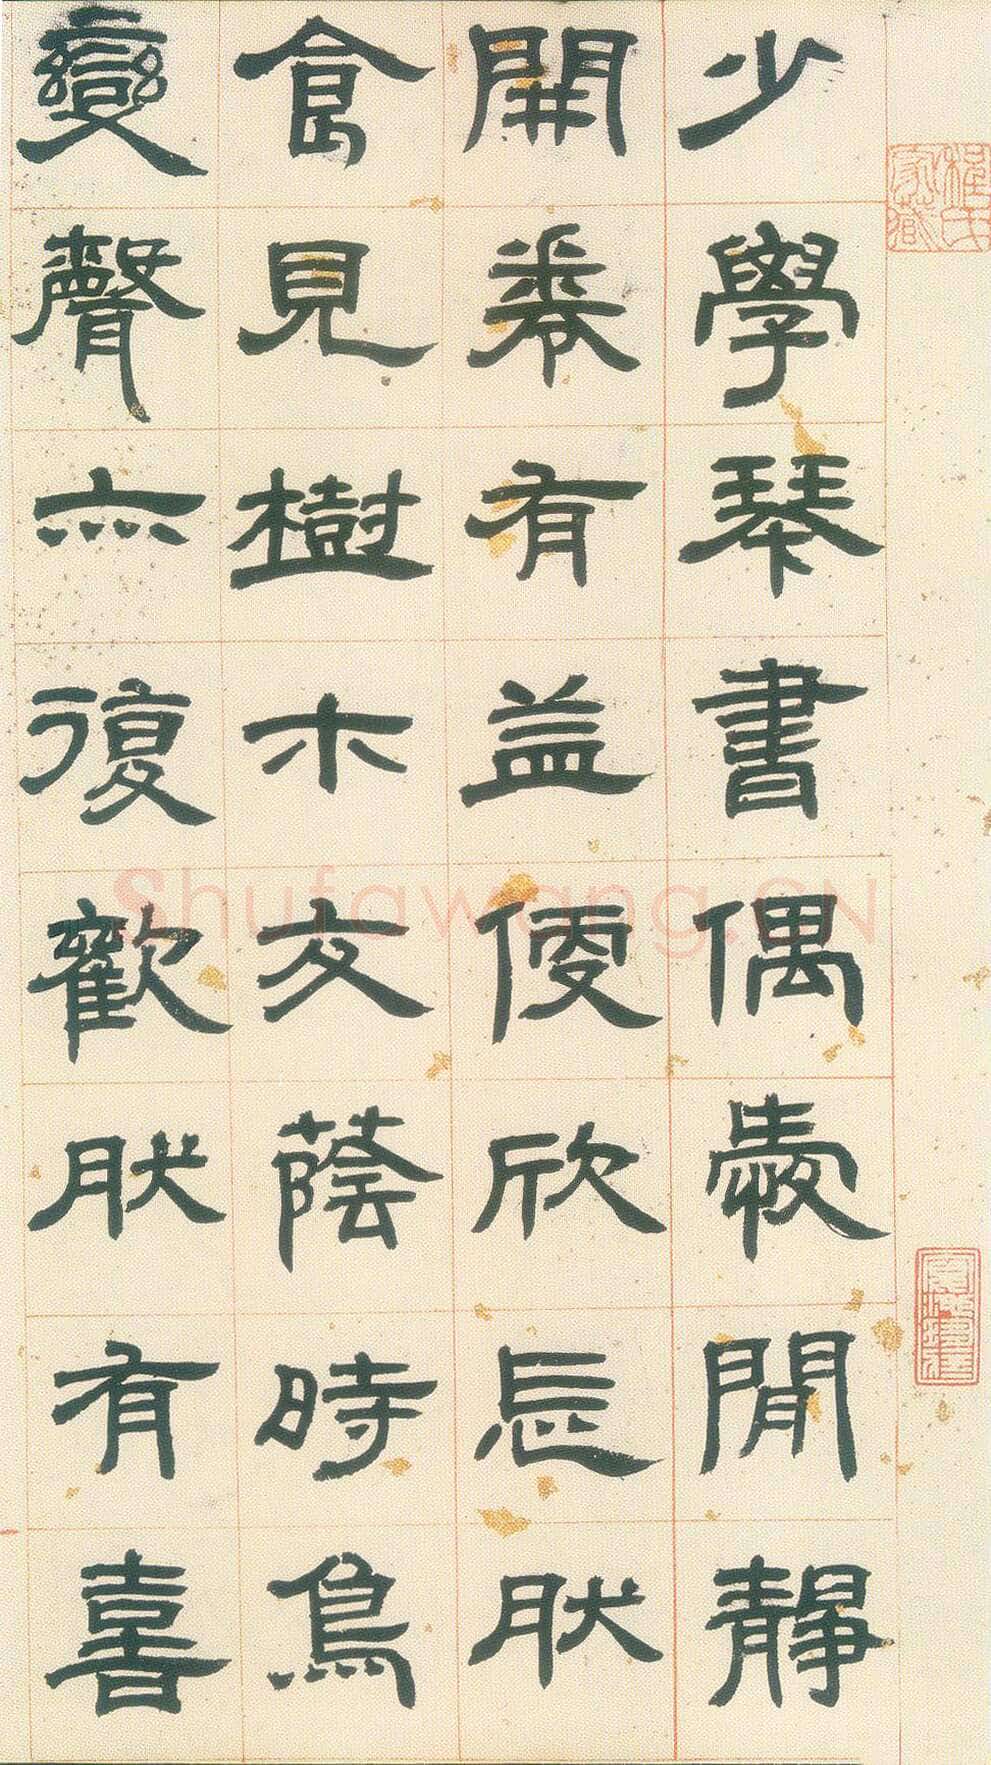 少學琴書偶愛閒靜
開卷有益便欣忘肰
食見樹木交蔭時鳥
變聲亦復歡肰有喜
程氏家藏
Shufawang.CN